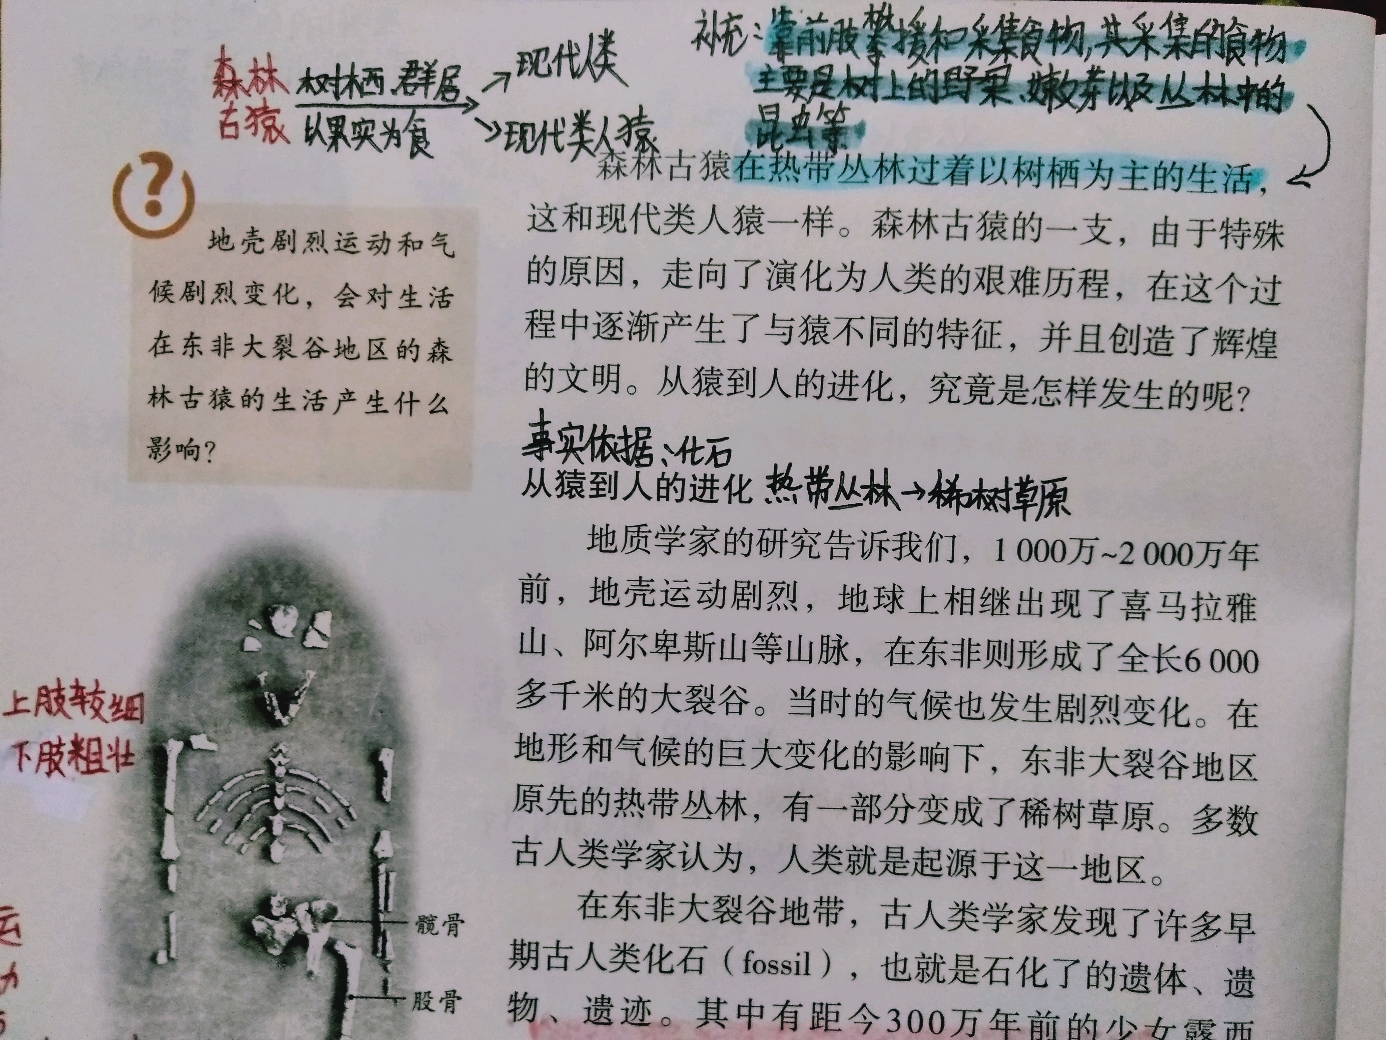 补充：靠前肢攀援和采集食物，其采集的食物
主要是树上的野果、嫩芽以及丛林中的
昆虫等
森林 树栖.群居 现代人类
古猿 以果实为食 现代类人猿
?
地壳剧烈运动和气
候剧烈变化，会对生活
在东非大裂谷地区的森
林古猿的生活产生什么
影响？
森林古猿在热带丛林过着以树栖为主的生活，
这和现代类人猿一样。森林古猿的一支，由于特殊
的原因，走向了演化为人类的艰难历程，在这个过
程中逐渐产生了与猿不同的特征，并且创造了辉煌
的文明。从猿到人的进化，究竟是怎样发生的呢？
事实依据：化石
从猿到人的进化 热带丛林→稀树草原
地质学家的研究告诉我们，1 000万~2 000万年
前，地壳运动剧烈，地球上相继出现了喜马拉雅
山、阿尔卑斯山等山脉，在东非则形成了全长6 000
多千米的大裂谷。当时的气候也发生剧烈变化。在
地形和气候的巨大变化的影响下，东非大裂谷地区
原先的热带丛林，有一部分变成了稀树草原。多数
古人类学家认为，人类就是起源于这一地区。
在东非大裂谷地带，古人类学家发现了许多早
期古人类化石（fossil），也就是石化了的遗体、遗
物、遗迹。其中有距今300万年前的少女露西
上肢较细
下肢粗壮
髋骨
股骨